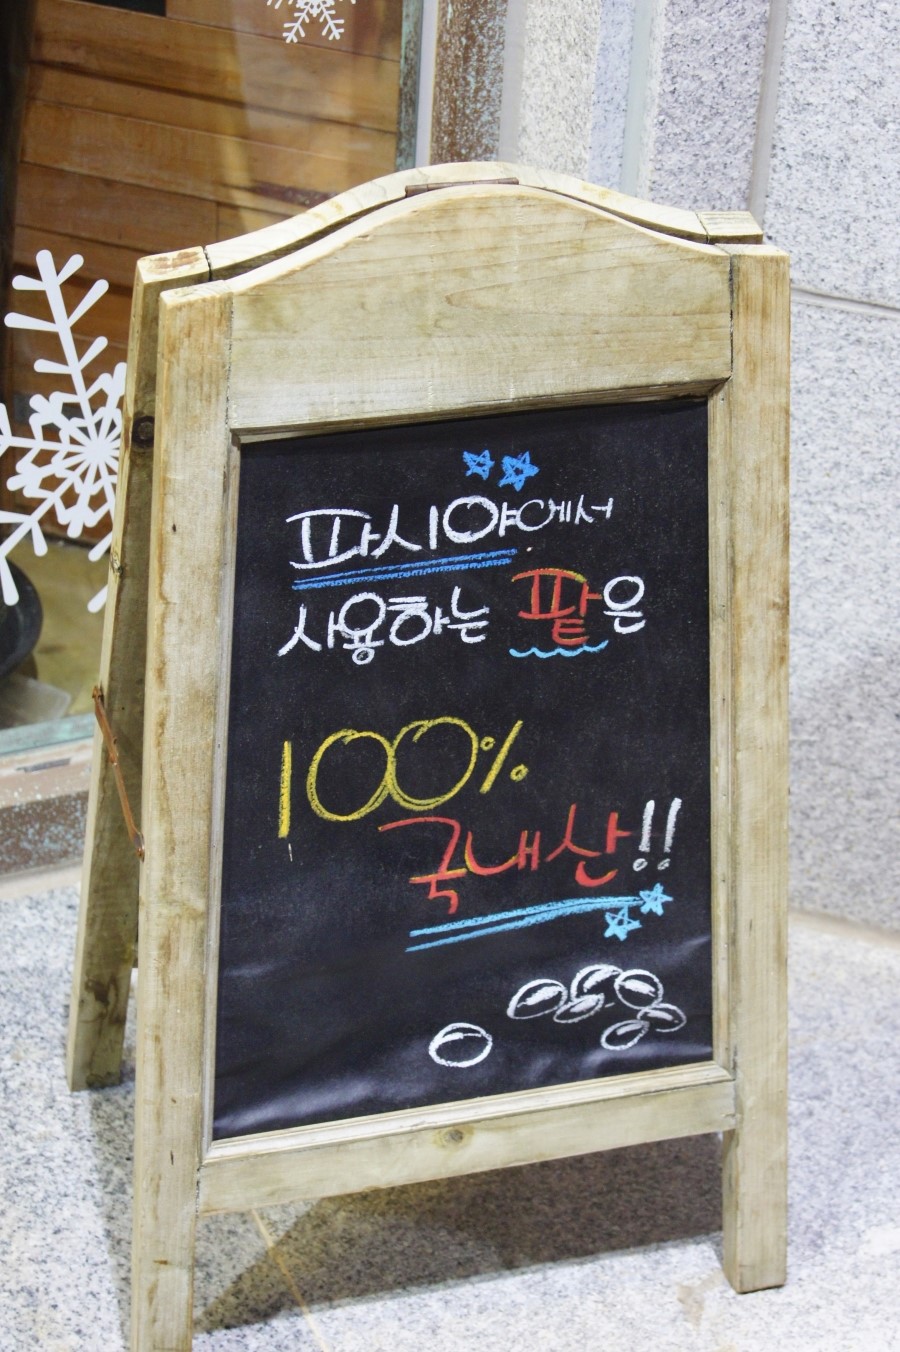 파시야에서
사용하는 팥은
100%
국내산!!